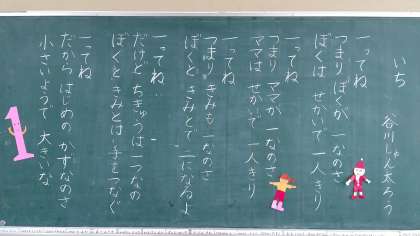 いち
谷川しゅん太ろう
一ってね
つまり ぼくが 一なのさ
ぼくは せかいで 一人きり
一ってね
つまり ママが 一なのさ
ママは せかいで 一人きり
一ってね
つまり きみも 一なのさ
ぼくと きみとで 二になるよ
一ってね
だけど ちきゅうは 一つなの
ぼくと きみとは 手をつなぐ
一ってね
だから はじめの かずなのさ
小さいようで 大きいな
1